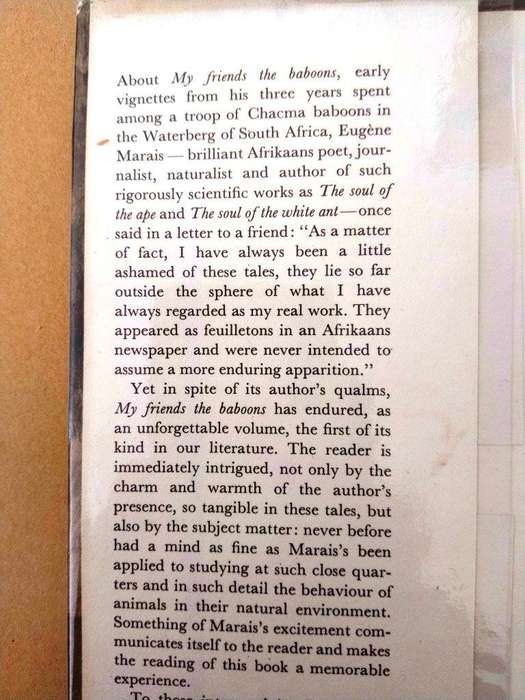 About My friends the baboons, early
vignettes from his three years spent
among a troop of Chacma baboons in
the Waterberg of South Africa, Eugène
Marais — brilliant Afrikaans poet, jour-
nalist, naturalist and author of such
rigorously scientific works as The soul of
the ape and The soul of the white ant—once
said in a letter to a friend: "As a matter
of fact, I have always been a little
ashamed of these tales, they lie so far
outside the sphere of what I have
always regarded as my real work. They
appeared as feuilletons in an Afrikaans
newspaper and were never intended to
assume a more enduring apparition."
Yet in spite of its author's qualms,
My friends the baboons has endured, as
an unforgettable volume, the first of its
kind in our literature. The reader is
immediately intrigued, not only by the
charm and warmth of the author's
presence, so tangible in these tales, but
also by the subject matter: never before
had a mind as fine as Marais's been
applied to studying at such close quar-
ters and in such detail the behaviour of
animals in their natural environment.
Something of Marais's excitement com-
municates itself to the reader and makes
the reading of this book a memorable
experience.
To those